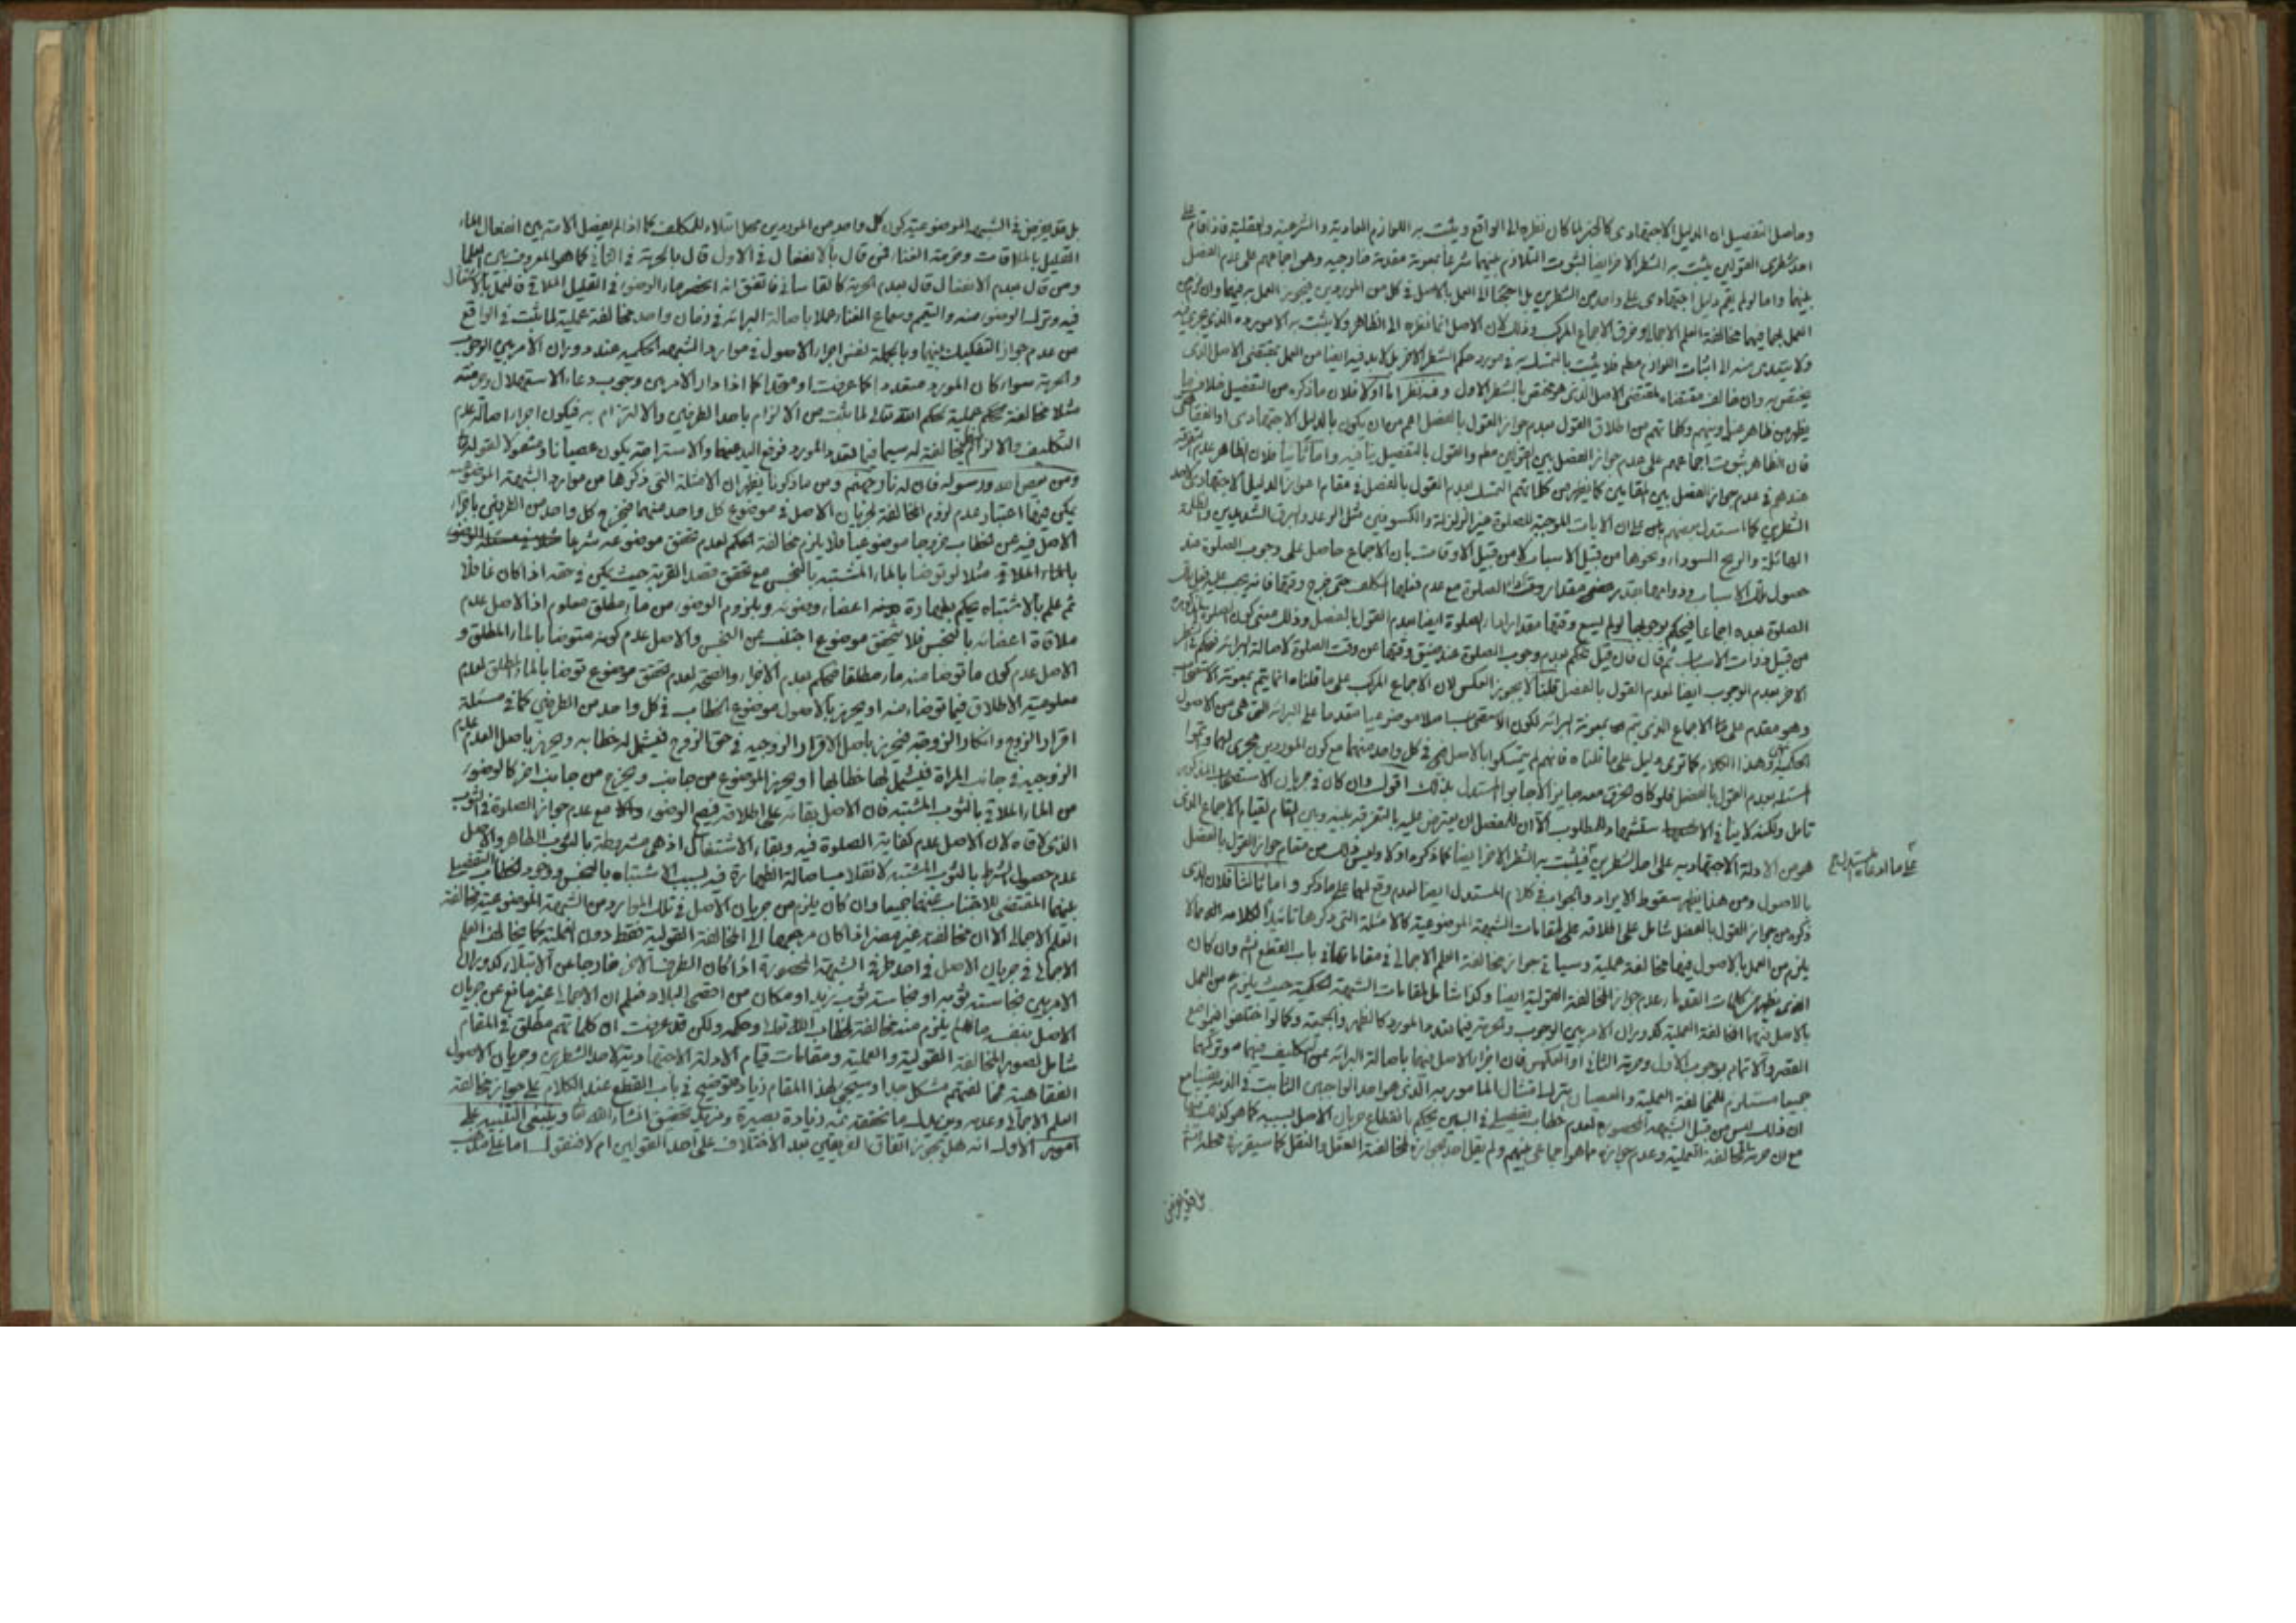 وحاصل التفصيل ان الدليل الاجتهادى كالخبر لما كان نظره الى الواقع ويثبت به اللوازم العادية والشرعية والعقلية فاذا قام على
احد شطرى القولين يثبت به الشطر الاخر ايضا لثبوت التلازم بينهما شرعا بمعونة مقدمة خارجيه وهو اجماعهم على عدم الفصل
بينهما واما لو لم يقم دليل اجتهادى على واحد من الشطرين بل احتجنا الى العمل بالاصل فى كل من الموردين فيجوز العمل به فيهما وان لزم من
العمل بهما فيهما مخالفة العلم الاجمالى وخرق الاجماع المركب وذلك لان الاصل انما نظره الى الظاهر ولا يثبت به الا مورده الذى جرى فيه
ولا يتعدى منه الى اثبات اللوازم مطم فلا يثبت بالتمسك به فى مورد حكم الشطر الاخر بل لا بد فيه ايضا من العمل بمقتضى الاصل الذى
يختص به وان خالف مقتضاه لمقتضى الاصل الذى هو مختص بالشطر الاول وفيه نظر اما اولا فلان ما ذكره من التفصيل خلاف ما
يظهر من ظاهر وكلماتهم من اطلاق القول بعدم جواز القول بالفصل اعم من ان يكون بالدليل الاجتهادى او الفقاهتى
فان الظاهر ثبوت اجماعهم على عدم جواز الفصل بين القولين مطم والقول بالتفصيل ينافيه واما ثانيا فلان الظاهر عدم التفرقة
عندهم فى عدم جواز الفصل بين المقامين كما يظهر من كلماتهم التمسك بعدم القول بالفصل فى مقام اعواز الدليل الاجتهادى لاحد
الشطرين كما استدل بعضهم على ان الايات الموجبة للصلوة غير الزلزلة والكسوفين مثل الرعد والبرق الشديدين والظلمة
الهائلة والريح السوداء ونحوها من قبيل الاسباب لا من قبيل الاوقات بان الاجماع حاصل على وجوب الصلوة عند
حصول تلك الاسباب ودوامها بقدر مقدار وقت اداء الصلوة مع عدم فعلها المكلف حتى خرج وقتها فانه يجب عليه فعل تلك
الصلوة بعده اجماعا فيحكم بوجوبها لو لم يسع وقتها مقدار اداء الصلوة ايضا لعدم القول بالفصل وذلك معنى كون الصلوة المذكورة
من قبيل ذوات الاسباب ثم قال فان قيل نحكم بعدم وجوب الصلوة عند ضيق وقتها عن وقت الصلوة لاصالة البرائة فيحكم فى الشطر
الاخر بعدم الوجوب ايضا لعدم القول بالفصل قلنا لا يجوز العكس لان الاجماع المركب على ما قلناه انما يتم بمعونة الاستصحاب
وهو مقدم على الاجماع الذى يتم بمعونة البرائة لكون الاستصحاب اصلا موضوعيا مقدما على البرائة التى هى من الاصول
الحكمية وهذا الكلام كما ترى دليل على ما قلناه فانهم لم يتمسكوا بالاصل فى كل واحد منهما مع كون الموردين مجرى لهما وتمموا
المسئلة بعدم القول بالفصل فلو كان الخرق معه جايزا لاجابوا المستدل بذلك اقول وان كان فى جريان الاستصحاب المذكور
تامل ولكنه لا ينافى المطلوب الا ان للمفصل ان يعترض عليه بالتفرقة بينه وبين المقام لقيام الاجماع الذى
هو من الادلة الاجتهاديه على احد الشطرين فيثبت به الشطر الاخر ايضا كما ذكره اولا وليس ذلك من مقام جواز القول بالفصل
على ما ادعاه المستدل
بالاصول ومن هذا يظهر سقوط الايراد والجواب فى كلام المستدل ايضا لعدم وقع لهما على ما ذكر واما ثالثا فلان الذى
ذكره من جواز القول بالفصل شامل على اطلاقه على لمقامات الشبهة الموضوعية كالامثلة التى ذكرها تائيدا لكلامه
يلزم من العمل بالاصول فيها مخالفة عملية وسياتى جواز مخالفة العلم الاجمالى فى مقاماتها فى باب القطع نعم وان كان
الذى يظهر من كلمات القدماء عدم جواز المخالفة القولية ايضا وكذا شامل لمقامات الشبهة الحكمية حيث يلزم من العمل
بالاصل فيهما المخالفة العملية كدوران الامر بين الوجوب والحرمة فيما تعدد المورد كالظهر والجمعة وكما لو اختلفوا فى مواضع
القصر والاتمام بوجوب الاول وحرمة الثانى او العكس فان اجراء الاصل فيهما باصالة البرائة عن التكليف فيهما وتركهما
جميعا مستلزم للمخالفة العملية والعصيان بترك امتثال المامور به الذى هو احد الواجبين الثابت فى الذمة
ان ذلك ليس من قبيل الشبهة المحصورة لعدم خطاب تفصيلى فى البين يحكم بانقطاع جريان الاصل بسببه كما هو كذلك فيها
مع ان حرمة المخالفة العملية وعدم جوازه مما هو اجماعى بينهم ولم يقل احد بجوازه لمخالفة العقل والنقل كما سيقرر فى محله انش
بل قد يفرض
بل قد يفرض فى الشبهة الموضوعية كون كل واحد من الموردين محل ابتلاء للمكلف كما اذا لم يفصل الامة بين انفعال الماء
القليل بالملاقات وحرمة الغناء فمن قال بالانفعال فى الاول قال بالحرمة فى الثانى كما هو المعروف بين العلماء
ومن قال بعدم الانفعال قال بعدم الحرمة كالقاسانى فاتفق انه انحصر ماء الوضوء فى القليل الملاقى
فيه وترك الوضوء منه والتيمم وسماع الغناء عملا باصالة البرائة فى زمان واحد مخالفة عملية لما ثبت فى الواقع
من عدم جواز التفكيك بينهما وبالجملة نفس اجراء الاصول فى موارد الشبهة الحكمية عند دوران الامر بين الوجوب
والحرمة سواء كان المورد متعددا كما عرفت او متحدا كما اذا دار الامر بين وجوب دعاء الاستهلال وحرمته
مثلا مخالفة عملية لحكم الله تعالى لما ثبت من الالزام باحد الطرفين والالتزام به فيكون اجراء اصالة عدم
التكليف والالزام مخالفة له سيما فيما تعدد المورد فوقع اليد عنهما والاستراحة يكون عصيانا ومشمولا لقوله تعالى
ومن يعص الله ورسوله فان له نار جهنم ومن ما ذكرنا يظهر ان الامثلة التى ذكرها من موارد الشبهة الموضوعية
يمكن فيها اعتبار عدم لزوم المخالفة لجريان الاصل فى موضوع كل واحد منهما فيخرج كل واحد من الطرفين باجراء
الاصل فيه عن الخطاب خروجا موضوعيا فلا يلزم مخالفة الحكم لعدم تحقق موضوعه شرعا
بالماء الملاقى مثلا لو توضا بالماء المشتبه بالنجس مع تحقق قصد القربة حيث يكفى فى حقه اذا كان غافلا
ثم علم بالاشتباه يحكم بطهارة اعضاء وضوئه وبلزوم الوضوء من ماء مطلق معلوم اذ الاصل عدم
ملاقاة اعضائه بالنجس فلا يتحقق موضوع اجتنب عن النجس والاصل عدم كونه متوضا بالماء المطلق و
الاصل عدم كون ما توضا منه ماء مطلقا فيحكم بعدم الاجزاء والصحة لعدم تحقق موضوع توضا بالماء المطلق لعدم
معلومية الاطلاق فيما توضاء منه او يحرز بالاصول موضوع الخطاب فى كل واحد من الطرفين كما فى مسئلة
اقرار الزوج وانكار الزوجه فيحرز باصل الاقرار الزوجيه فى حق الزوج فيشمل له خطابه ويحرز باصل العدم عدم
الزوجيه فى جانب المراة فيشمل لها خطابها او يحرز الموضوع من جانب ويخرج من جانب اخر كالوضوء
من الماء الملاقى بالثوب المشتبه فان الاصل بقائه على اطلاقه فيصح الوضوء مع عدم جواز الصلوة فى الثوب
الذى لاقاه لان الاصل عدم كفاية الصلوة فيه وبقاء الاشتغال اذ هى مشروطة بالثوب الطاهر والاصل
عدم حصول الشرط بالثوب المشتبه لانقلاب اصالة الطهارة فيه بسبب الاشتباه بالنجس ووجود الخطاب التفصيلى
بينهما المقتضى للاجتناب عنهما جميعا وان كان يلزم من جريان الاصل فى تلك الموارد من الشبهة الموضوعية مخالفة
العلم الاجمالى الا ان مخالفته غير مضر اذا كان مرجعها الى المخالفة القولية فقط دون العملية كما يخالف العلم
الاجمالى فى جريان الاصل فى احد طرفى الشبهة المحصورة اذا كان الطرف الاخر خارجا عن الابتلاء كدوران
الامر بين نجاسة ثوبه او نجاسة ثوب زيد او مكان من اقصى البلاد فعلم ان الاجمالى غير مانع عن جريان
الاصل بنفسه ما لم يلزم منه مخالفة لخطاب الله تعالى وحكمه ولكن قد عرفت ان كلماتهم مطلق فى المقام
شامل لصور المخالفة القولية والعملية ومقامات قيام الادلة الاجتهادية لاحد الشطرين وجريان الاصول
الفقاهتية فمخالفتهم مشكل جدا وسيجيء لهذا المقام زيادة توضيح فى باب القطع عند الكلام على جواز مخالفة
العلم الاجمالى وعدمه ومن ملاحظة ما نحققه ثمه زيادة بصيرة ومزيد تحقيق انشاء الله تعالى وينبغى التنبيه على
امور الاول انه هل يجوز اتفاق الفريقين بعد الاختلاف على احد القولين ام لا فنقول اما على مذهب